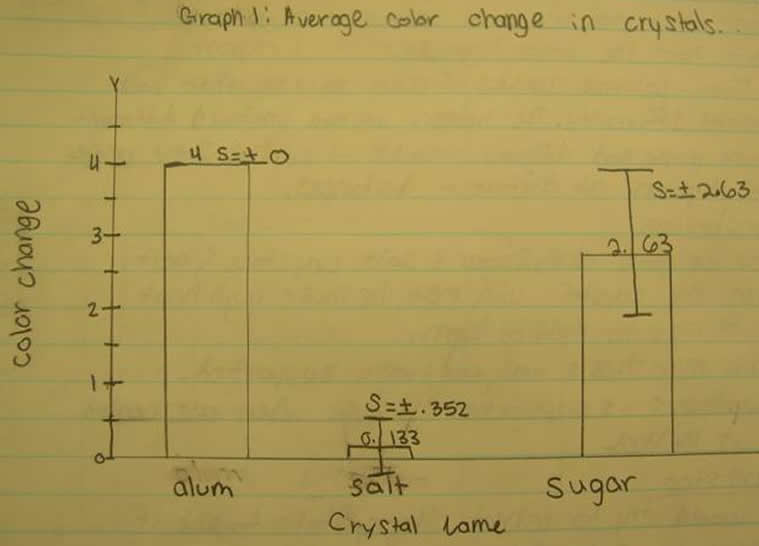 Graph 1: Average color change in crystals.
Y
4
3
2
1
0
color change
4 S=± 0
S=±.352
0.133
S=±2.63
2.63
alum
salt
Sugar
Crystal name